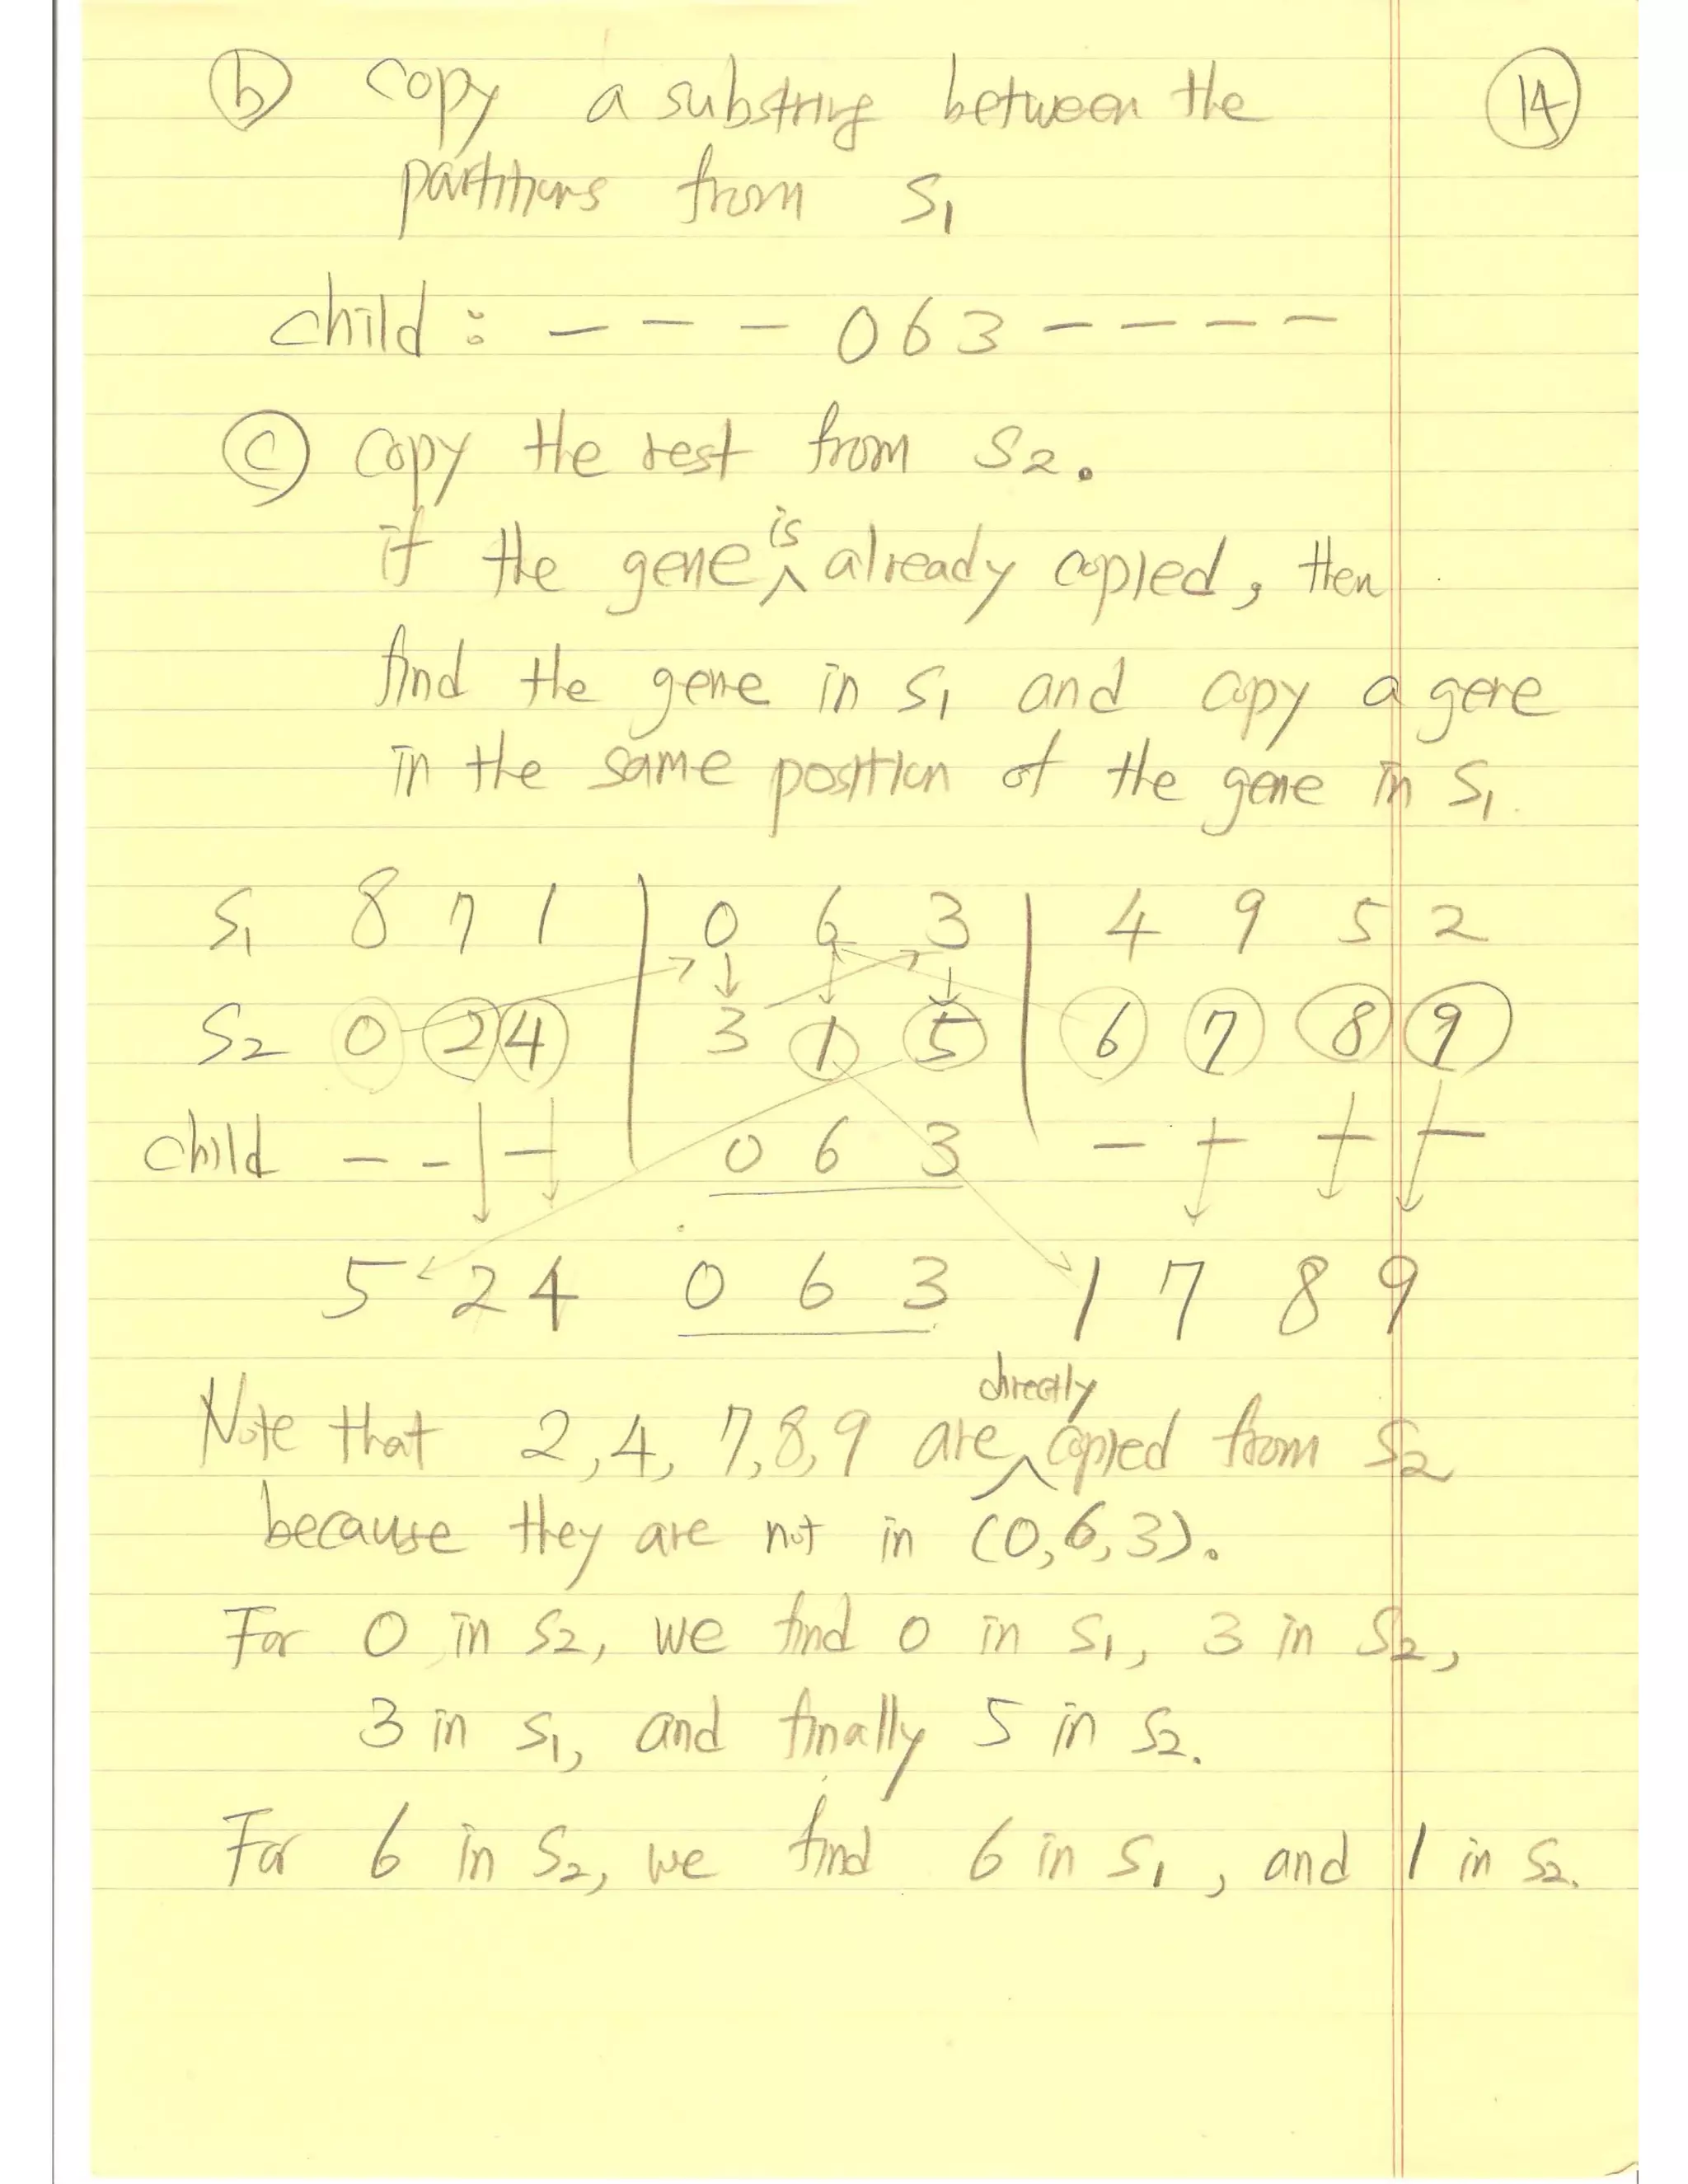 ⓑ copy a substring between the ⑭
partitions from S1
child : - - - 0 6 3 - - - -
ⓒ copy the rest from S2.
if the gene is ^ already copied, then
find the gene in S1 and copy a gene
in the same position of the gene in S1.
S1 8 7 1 | 0 6 3 | 4 9 5 2
S2 0 2 4 3 1 5 6 7 8 9
child - - - 0 6 3 - - - -
5 2 4 0 6 3 1 7 8 9
Note that 2, 4, 7, 8, 9 are ^ directly copied from S2
because they are not in (0, 6, 3).
For 0 in S2, we find 0 in S1, 3 in S2,
3 in S1, and finally 5 in S2.
For 6 in S2, we find 6 in S1, and 1 in S2.